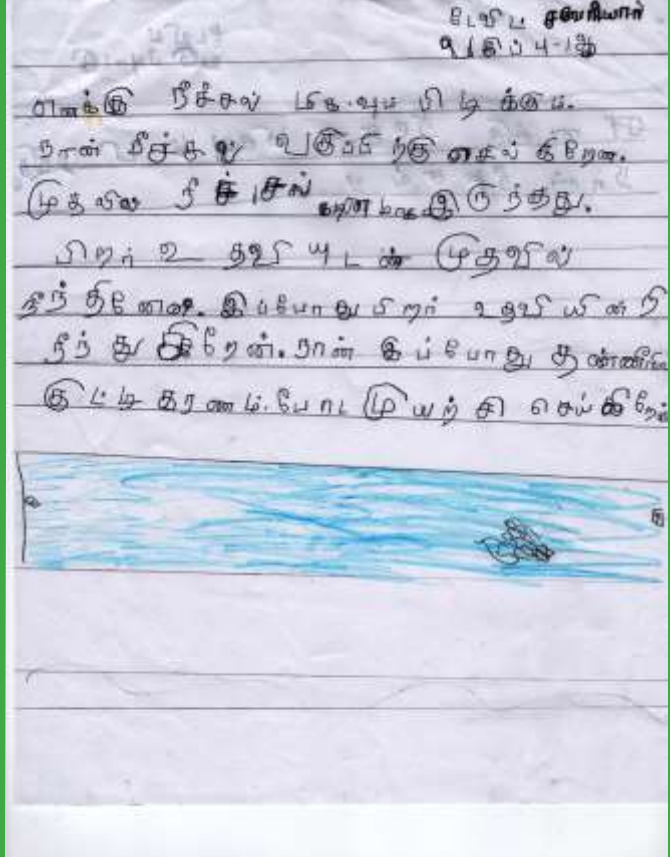 டேவிட் சவேரியார்
வகுப்பு 4-ஆ
எனக்கு நீச்சல் மிகவும் பிடிக்கும்.
நான் நீச்சல் வகுப்பிற்கு செல்கிறேன்.
முதலில் நீச்சல் கடினமாக இருந்தது.
பிறர் உதவியுடன் முதலில்
நீந்தினேன். இப்போது பிறர் உதவியின்றி
நீந்துகிறேன். நான் இப்போது தண்ணீரில்
குட்டிகரணம் போட முயற்சி செய்கிறேன்